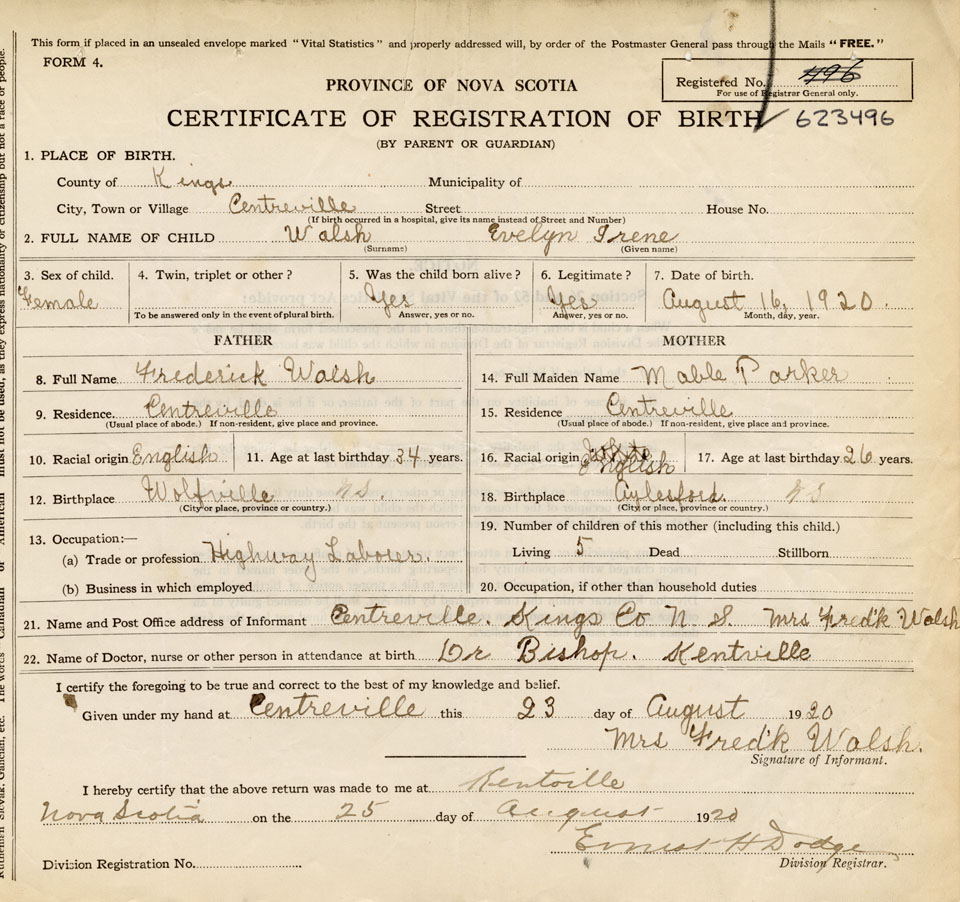 This form if placed in an unsealed envelope marked "Vital Statistics" and properly addressed will, by order of the Postmaster General pass through the Mails "FREE."
FORM 4.
Registered No. 496
For use of Registrar General only.
PROVINCE OF NOVA SCOTIA
CERTIFICATE OF REGISTRATION OF BIRTH 623496
(BY PARENT OR GUARDIAN)
1. PLACE OF BIRTH.
County of Kings Municipality of
City, Town or Village Centreville Street House No.
(If birth occurred in a hospital, give its name instead of Street and Number)
2. FULL NAME OF CHILD Walsh Evelyn Irene
(Surname) (Given name)
3. Sex of child. 4. Twin, triplet or other? 5. Was the child born alive? 6. Legitimate? 7. Date of birth.
Female Yes Yes August 16, 1920
To be answered only in the event of plural birth. Answer, yes or no. Answer, yes or no. Month, day, year.
FATHER MOTHER
8. Full Name Frederick Walsh 14. Full Maiden Name Mable Parker
9. Residence. Centreville 15. Residence Centreville
(Usual place of abode.) If non-resident, give place and province. (Usual place of abode.) If non-resident, give place and province.
10. Racial origin English 11. Age at last birthday 34 years. 16. Racial origin English 17. Age at last birthday 26 years.
12. Birthplace Wolfville N.S. 18. Birthplace Aylesford. N S
(City or place, province or country.) (City or place, province or country.)
19. Number of children of this mother (including this child.)
13. Occupation:—
(a) Trade or profession Highway Laborer. Living 5 Dead Stillborn
(b) Business in which employed 20. Occupation, if other than household duties
21. Name and Post Office address of Informant Centreville. Kings Co N. S. Mrs Fred'k Walsh
22. Name of Doctor, nurse or other person in attendance at birth Dr Bishop. Kentville
I certify the foregoing to be true and correct to the best of my knowledge and belief.
Given under my hand at Centreville this 23 day of August 1920
Mrs Fred'k Walsh.
Signature of Informant.
I hereby certify that the above return was made to me at Kentville
Nova Scotia on the 25 day of August 1920
Ernest H Dodge
Division Registration No. Division Registrar.